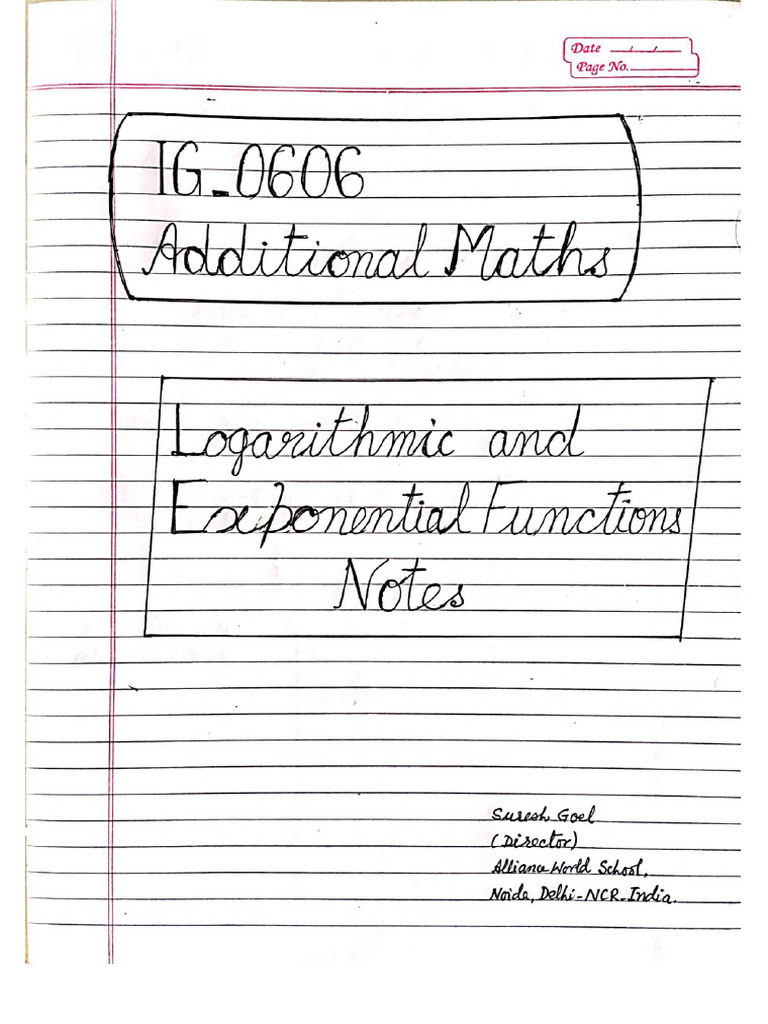 Date __/__/__
Page No.______
IG_0606
Additional Maths
Logarithmic and
Exponential Functions
Notes
Suresh Goel
(Director)
Alliance World School,
Noida, Delhi-NCR-India.